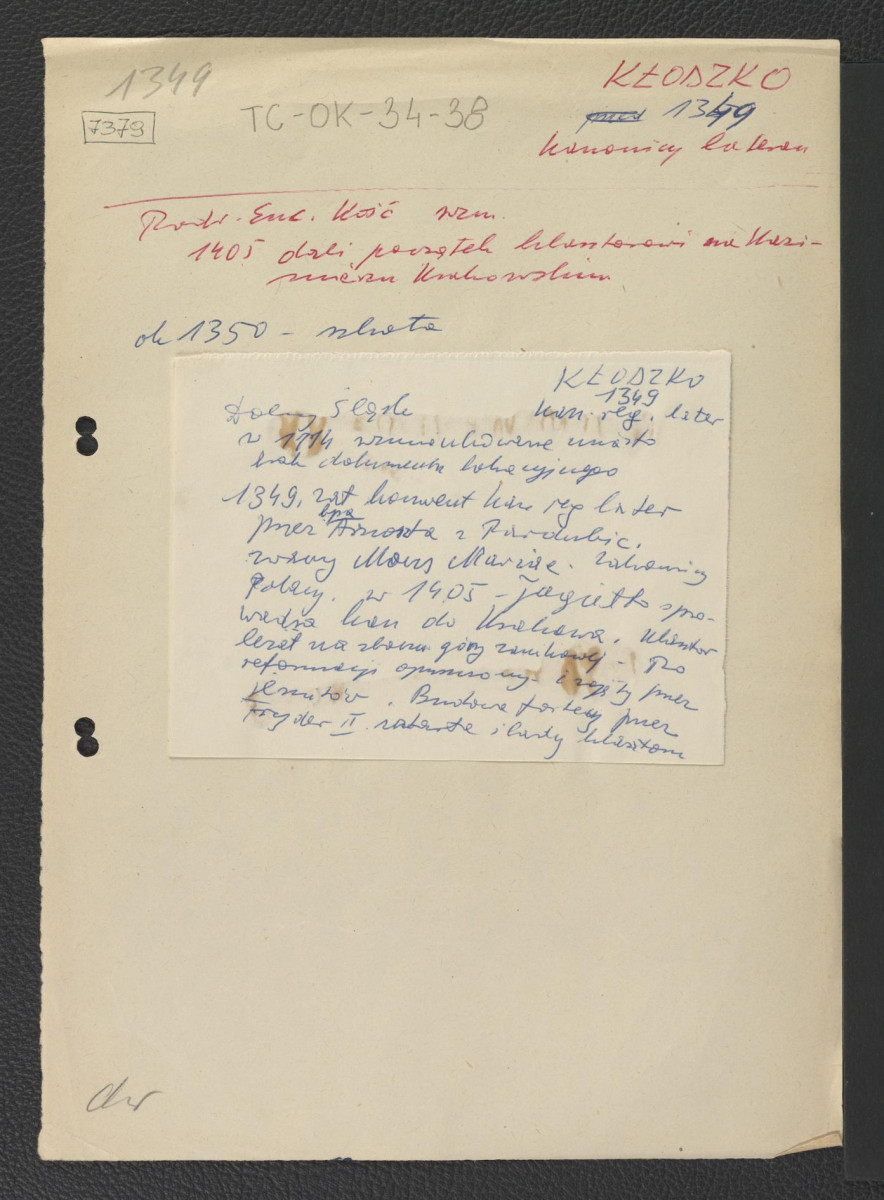 1349
7379
TC-OK-34-38
KŁODZKO
1349
Kanonicy lateran
Podr. Enc. Kość wzm.
1405 dali początek klasztorowi na Kazi-
mierzu Krakowskim
ok 1350 - szkoła
KŁODZKO
1349
Dolny Śląsk kan. reg. later
w 1114 wzmiankowane miasto
brak dokumentu lokacyjnego
1349. zał konwent kan reg later
przez bpa Arnosta z Pardubic.
zwany Mons Mariae. Zakonnicy
Polacy. w 1405 - Jagiełło spro-
wadza kan do Krakowa. Klasztor
leżał na zboczu góry zamkowej - Po
reformacji opuszczony i zajęty przez
jezuitów. Budowa fortecy przez
Fryder II. zatarła ślady klasztoru
dw